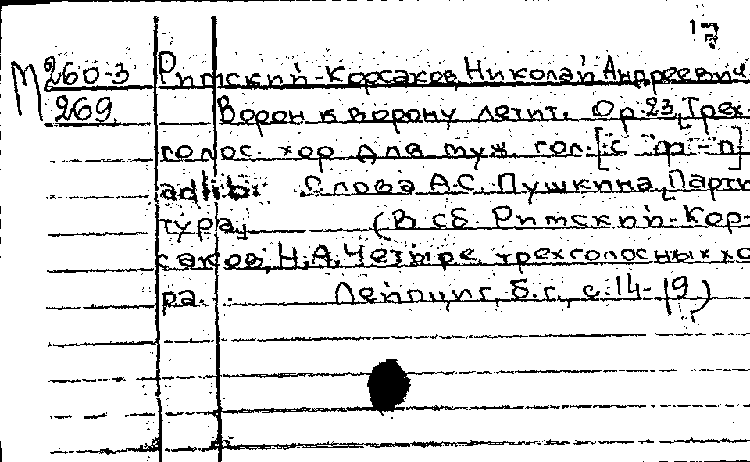 17
М 260-3 Римский-Корсаков, Николай Андреевич
269 Ворон к ворону летит. Op. 23, [Трех-
голос. хор для муж. гол. [с ф-п]
ad lib. Слова А.С. Пушкина, Парти
тура] (В сб Римский-Кор-
саков, Н.А. Четыре трехголосных хо
ра. Лейпциг, б.г., с. 14-19)